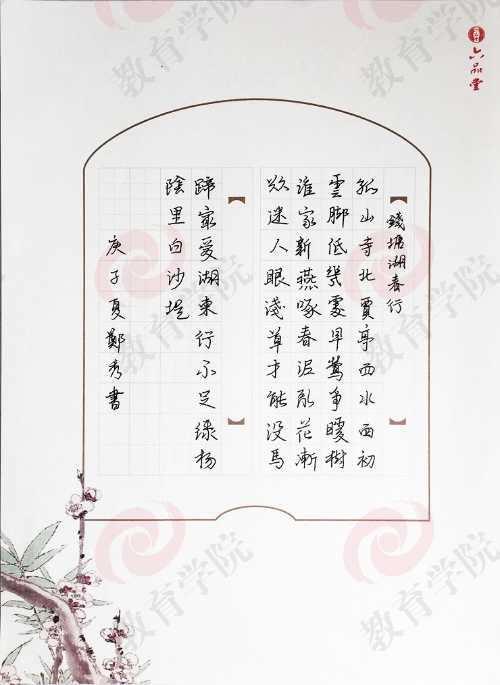 錢塘湖春行
孤山寺北賈亭西水面初
雲脚低幾處早鶯爭暖樹
誰家新燕啄春泥亂花漸
欲迷人眼淺草才能沒馬
蹄最愛湖東行不足綠楊
陰里白沙堤
庚子夏鄭秀書
六品堂
教育学院
教育学院
教育学院
教育学院
教育学院
教育学院